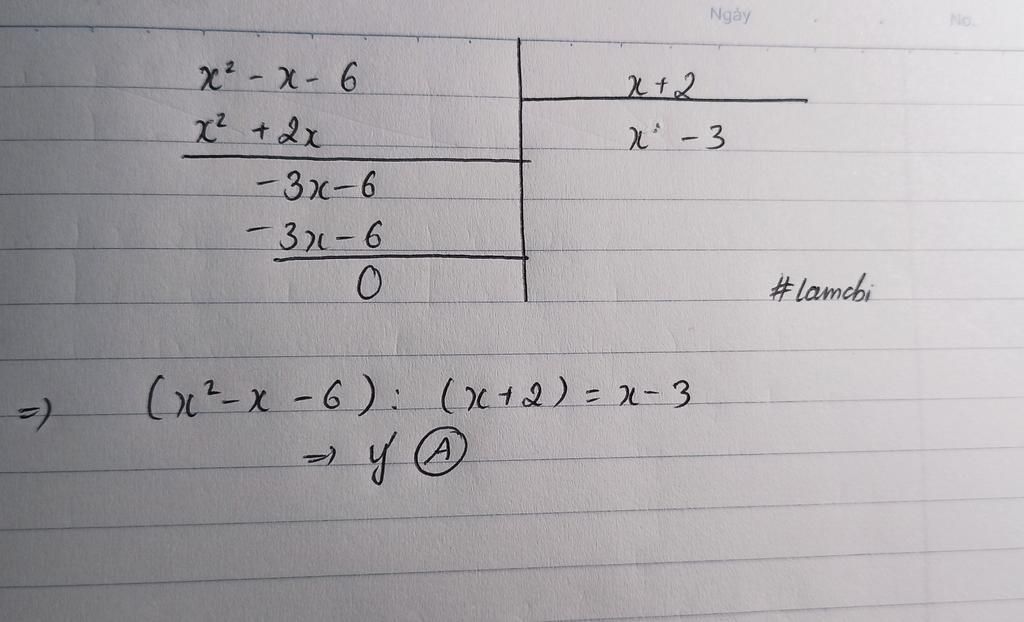 Ngày No.
x² - x - 6 x + 2
x² + 2x x - 3
-3x - 6
-3x - 6
0
#lamchi
=> (x² - x - 6) : (x + 2) = x - 3
=> ý Ⓐ